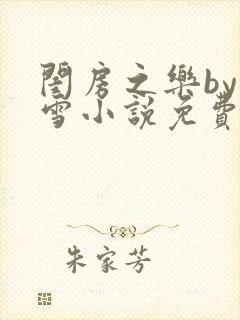 閨房之樂by
雪小說免費
朱家芳